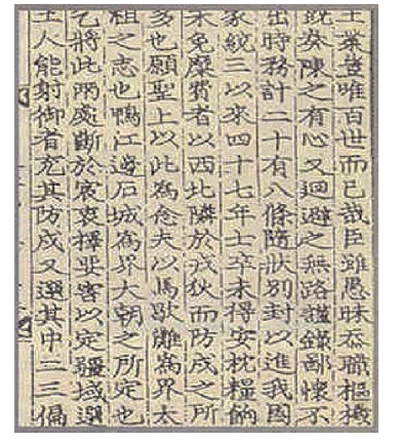 王業豈唯百世而已哉臣雖愚昧忝職樞機
旣奏陳之有心又迴避之無路謹錄鄙懷不
出時務計二十有八條隨狀別封以進我國
家統三以來四十七年士卒未得安枕糧餉
未免糜費者以西北隣於戎狄而防戍之所
多也願聖上以此爲念夫以馬歇灘爲界太
祖之志也鴨江邊石城爲界大朝之所定也
乞將此兩處斷於宸衷擇要害以定疆域選
土人能射御者充其防戍又選其中二三偏